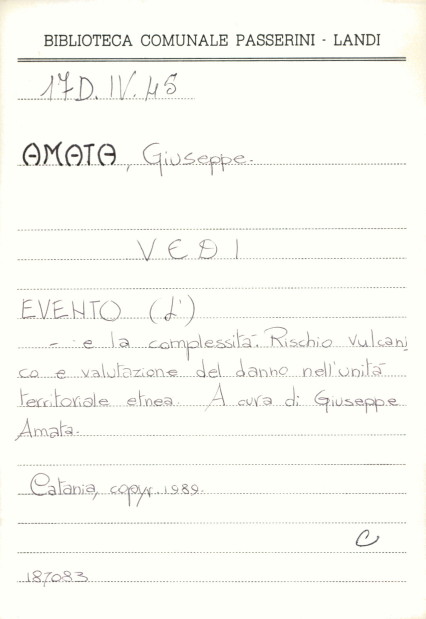 BIBLIOTECA COMUNALE PASSERINI - LANDI
17D.IV.45
AMATA, Giuseppe.
VEDI
EVENTO (L')
- e la complessità. Rischio vulcani
co e valutazione del danno nell'unità
territoriale etnea. A cura di Giuseppe
Amata.
Catania, copyr. 1989.
C
187083